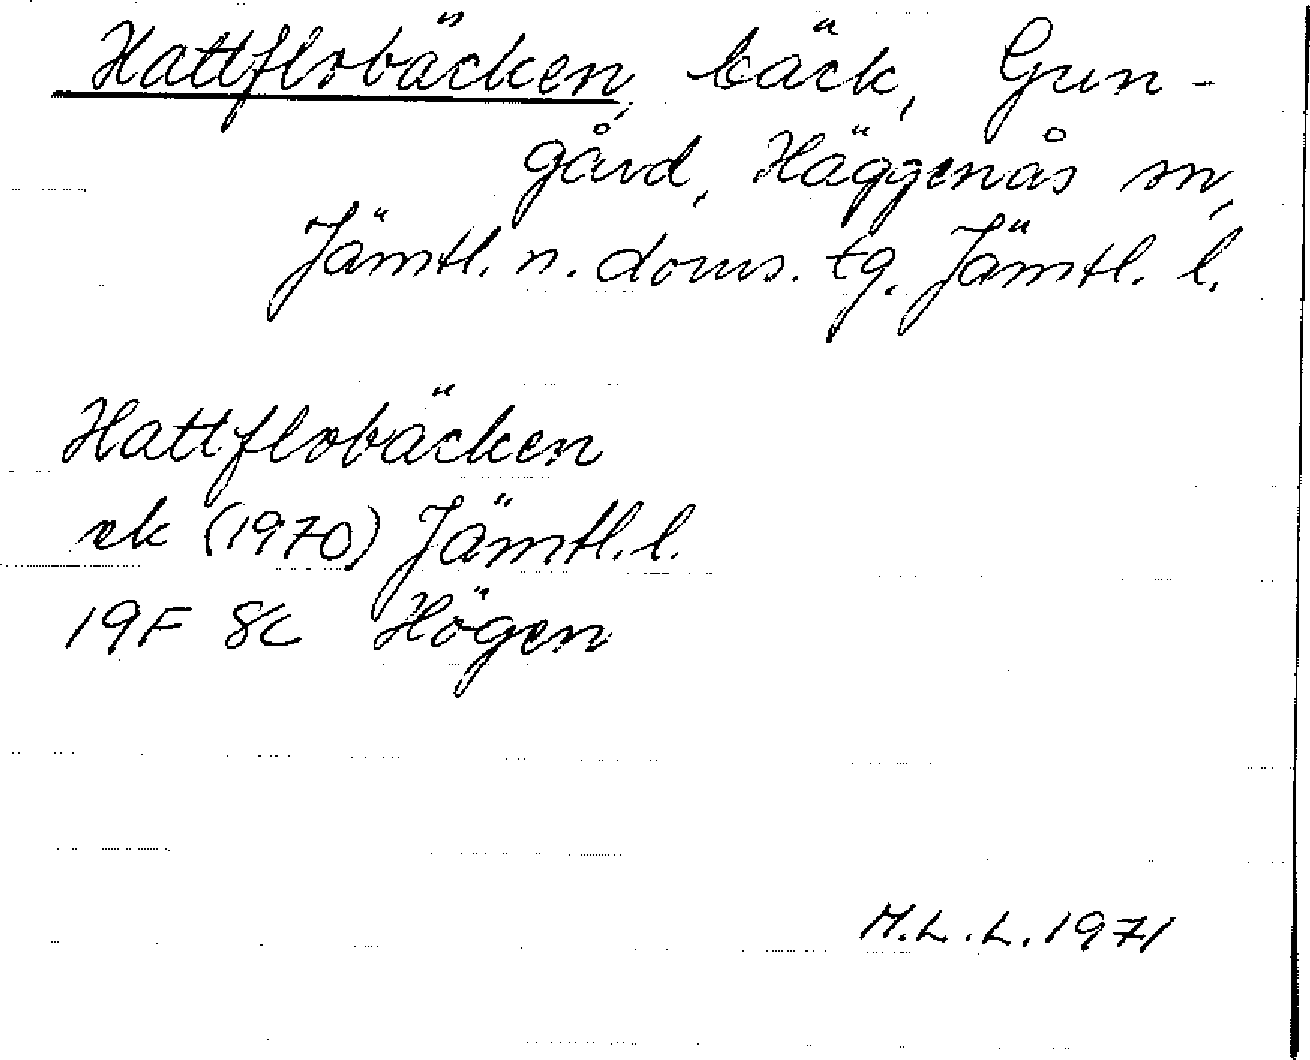 Hattflobäcken, bäck, Gun-
gård, Häggenås sn,
Jämtl. n. doms. tg. Jämtl. l.
Hattflobäcken
ek (1970) Jämtl. l.
19F 8c Högen
M.L.L. 1971